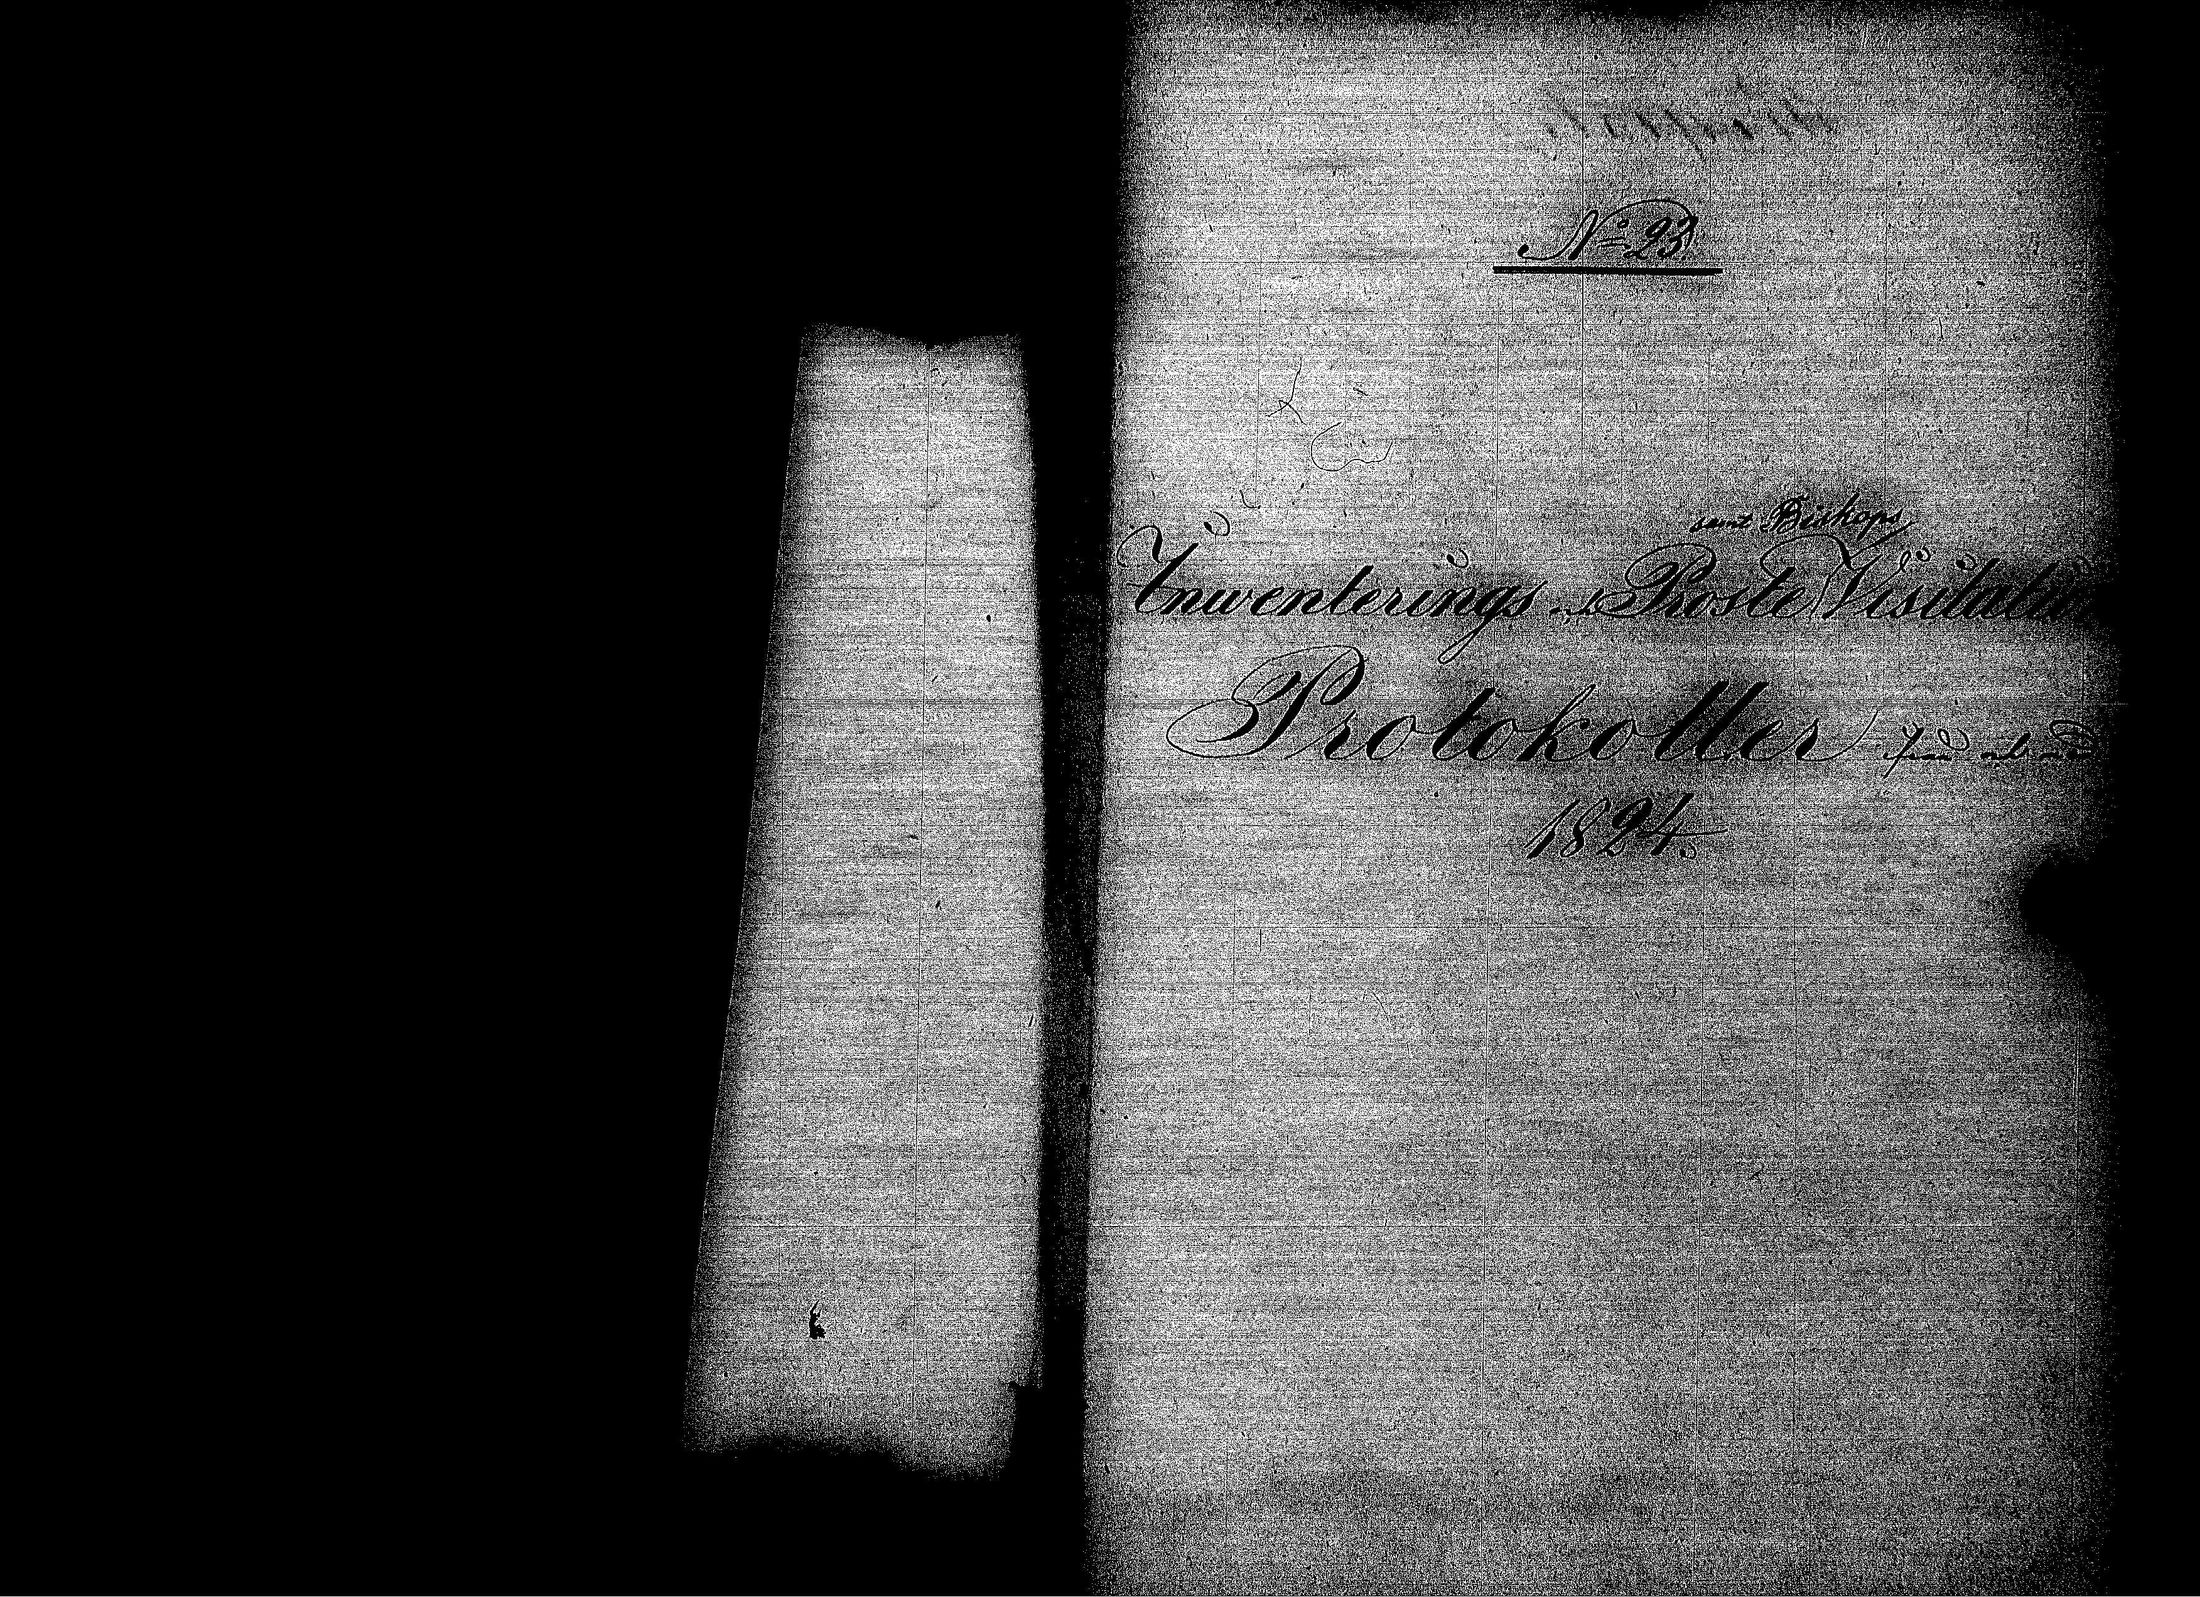 N:o 23.
samt Biskops
Inwenterings och Proste Visitatio
Protokoller från och med
1824.